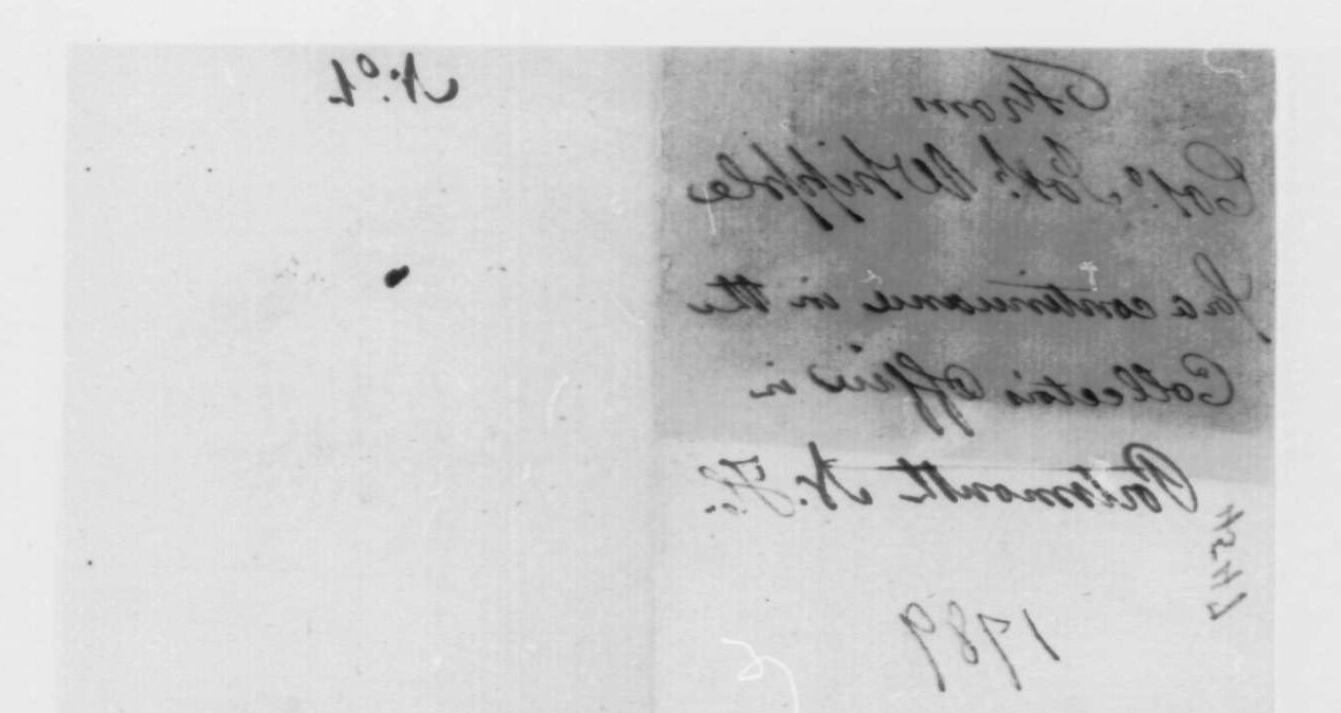 From
Colo. Josh. Whipple
for a continuance in the
Collectors Office in
Portsmouth N. H.
4542
1789
No. 1